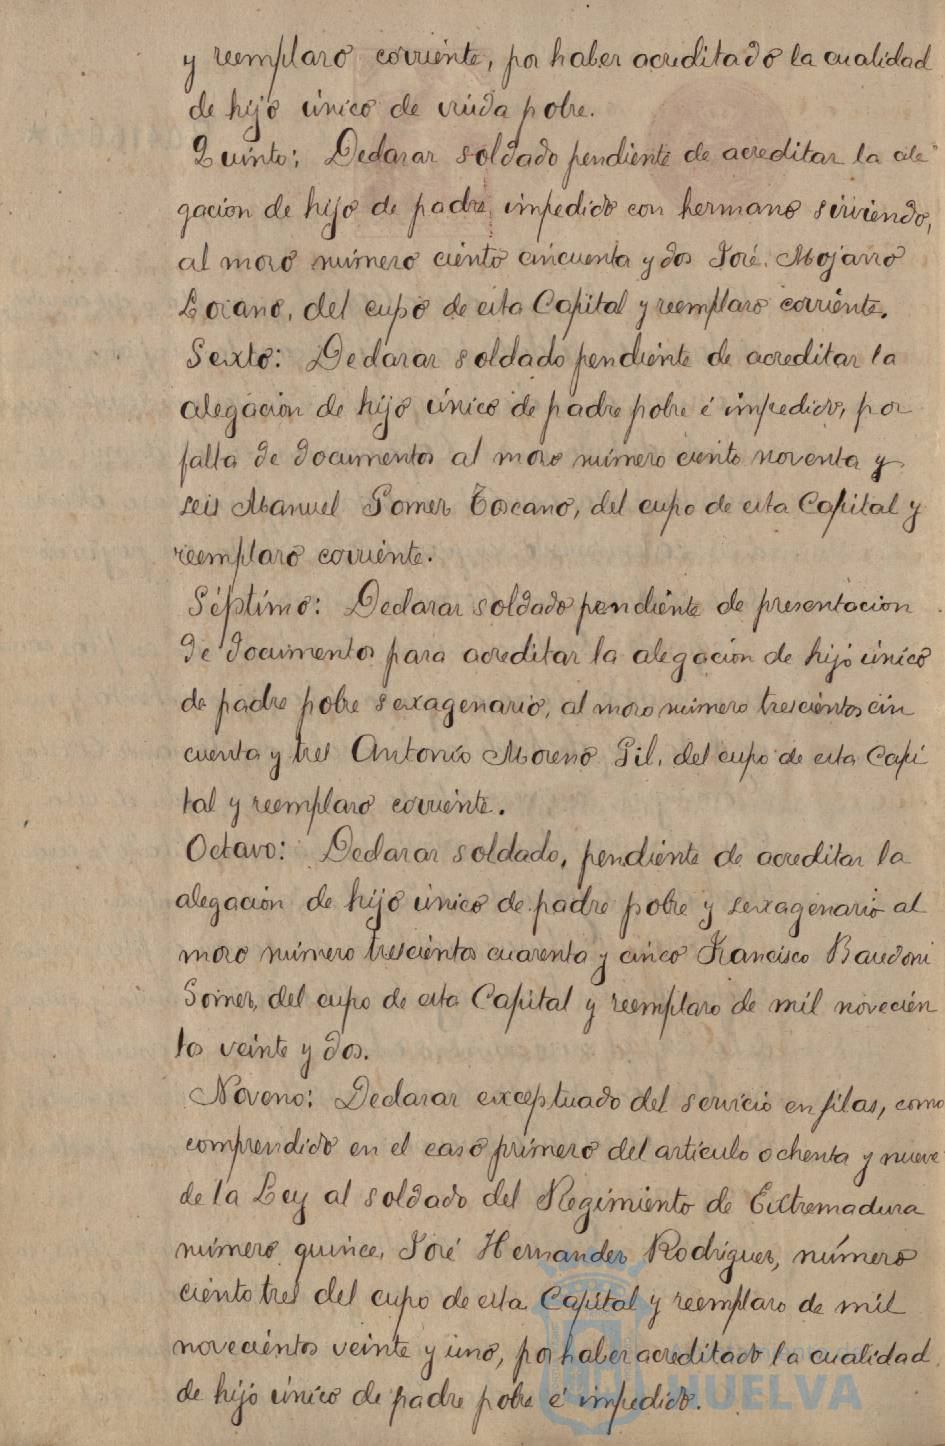 y reemplazo corriente, por haber acreditado la cualidad
de hijo único de viuda pobre.
Quinto: Declarar soldado pendiente de acreditar la ale
gacion de hijo de padre impedido con hermano sirviendo,
al mozo número ciento cincuenta y dos José Mojarro
Lozano, del cupo de esta Capital y reemplazo corriente.
Sexto: Declarar soldado pendiente de acreditar la
alegación de hijo único de padre pobre é impedido, por
falta de documentos al mozo número ciento noventa y
seis Manuel Gomez Toscano, del cupo de esta Capital y
reemplazo corriente.
Séptimo: Declarar soldado pendiente de presentacion
de documentos para acreditar la alegación de hijo único
de padre pobre sexagenario, al mozo número trescientos cin
cuenta y tres Antonio Moreno Gil, del cupo de esta Capi
tal y reemplazo corriente.
Octavo: Declarar soldado, pendiente de acreditar la
alegación de hijo único de padre pobre y sexagenario al
mozo número trescientos cuarenta y cinco Francisco Baudoni
Gomez, del cupo de esta Capital y reemplazo de mil novecien
tos veinte y dos.
Noveno: Declarar exceptuado del servicio en filas, como
comprendido en el caso primero del artículo ochenta y nueve
de la Ley al soldado del Regimiento de Extremadura
número quince, José Hernandez Rodríguez, número
ciento tres del cupo de esta Capital y reemplazo de mil
novecientos veinte y uno, por haber acreditado la cualidad
de hijo único de padre pobre é impedido.
HUELVA